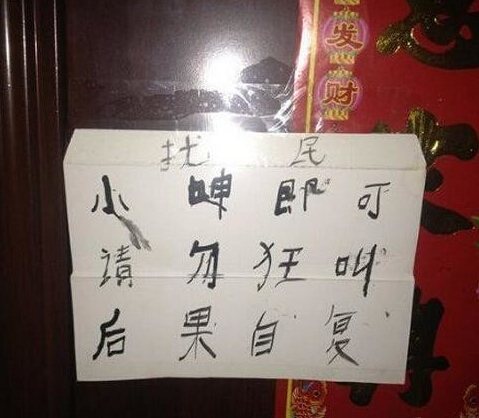 发财
扰 民
小 呻 即 可
请 勿 狂 叫
后 果 自 复